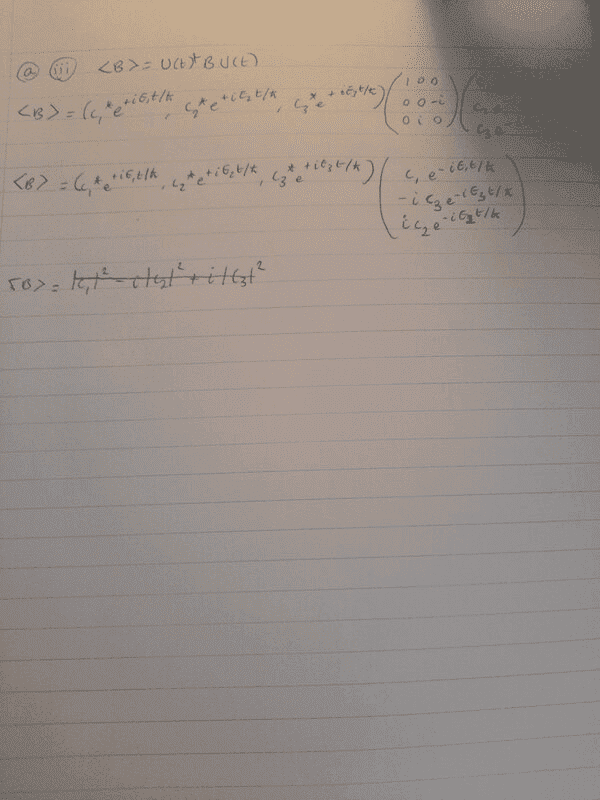 (a) (iii) <B> = U(t)†BU(t)
<B> = (c₁*e^{+iE₁t/ħ}, c₂*e^{+iE₂t/ħ}, c₃*e^{+iE₃t/ħ}) (1 0 0
0 0 -i
0 i 0) (c
c₂e
c₃e
<B> = (c₁*e^{+iE₁t/ħ}, c₂*e^{+iE₂t/ħ}, c₃*e^{+iE₃t/ħ}) (c₁ e^{-iE₁t/ħ}
-i c₃e^{-iE₃t/ħ}
i c₂e^{-iE₂t/ħ})
<B> = |c₁|² - i|c₂|² + i|c₃|²